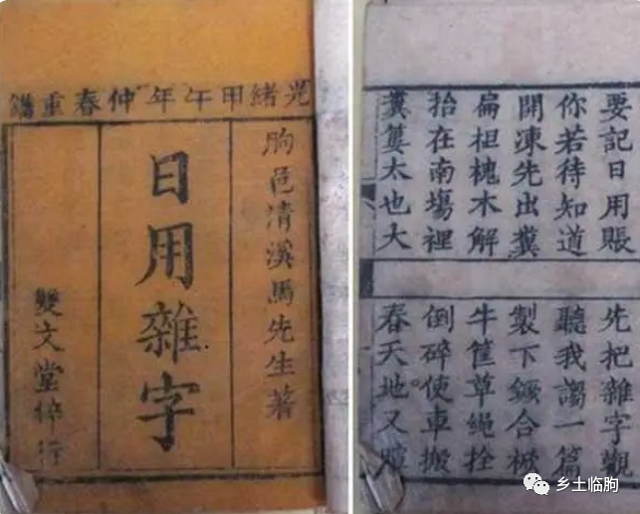 光緒甲午年仲春重鐫
朐邑清溪馬先生著
日用雜字
雙文堂梓行
要記日用賬
先把雜字觀
你若待知道
聽我謅一篇
開凍先出糞
製下鐝合杴
扁担槐木解
牛筐草繩拴
抬在南塲裡
倒碎使車搬
糞簍太也大
春天地又暄
乡土临朐